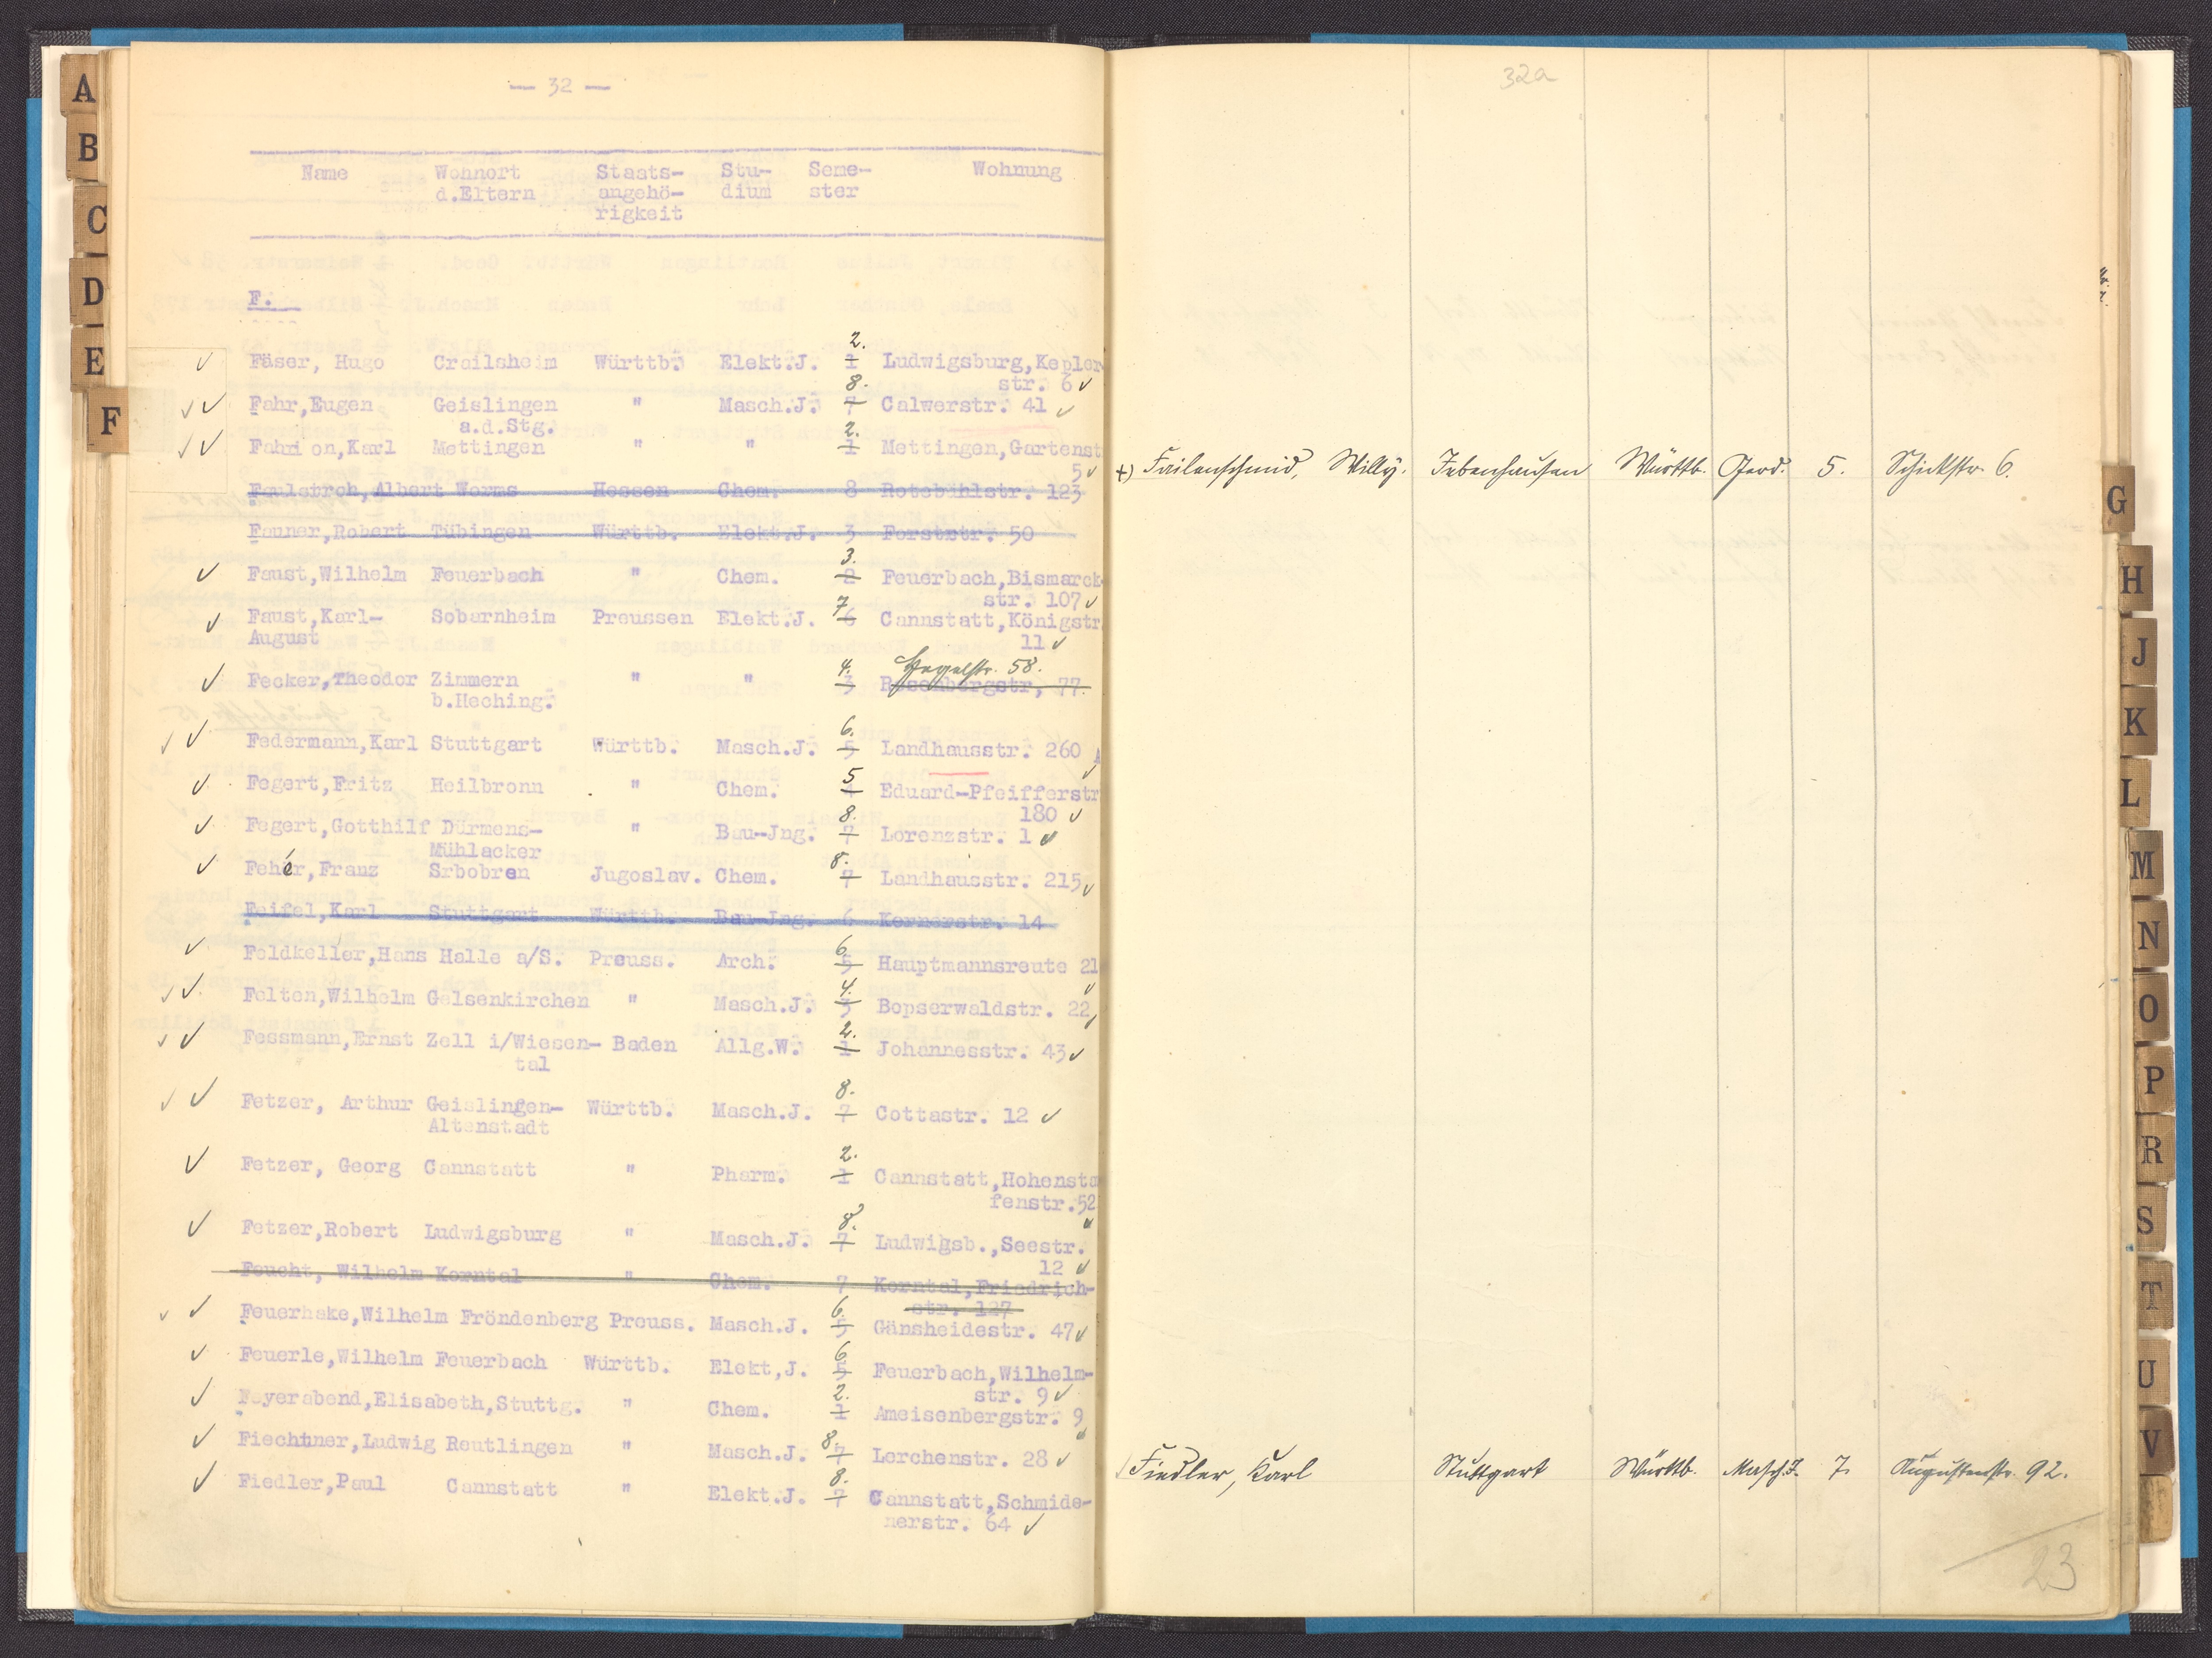 — 32 —
Name Wohnort d.Eltern Staats-angehö-rigkeit Stu-dium Seme-ster Wohnung
F.
2.
Fäser, Hugo Crailsheim Württb. Elekt.J. 1 Ludwigsburg,Kepler
8. str. 6
Fahr,Eugen Geislingen " Masch.J. 7 Calwerstr. 41
a.d.Stg. 2.
Fahrion,Karl Mettingen " " 1 Mettingen,Gartenst
5
Faulstroh, Albert Worms Hessen Chem. 8 Rotebühlstr. 123
Fauner,Robert Tübingen Württb. Elekt.J. 3 Forststr. 50
3.
Faust,Wilhelm Feuerbach " Chem. 2 Feuerbach,Bismarck
str. 107
7
Faust,Karl- Sobernheim Preussen Elekt.J. 6 Cannstatt,Königstr
August 11
4. Hegelstr. 58.
Fecker,Theodor Zimmern " " 3 Rosenbergstr, 77.
b.Heching.
6.
Federmann,Karl Stuttgart Württb. Masch.J. 5 Landhausstr. 260
5
Fegert,Fritz Heilbronn " Chem. 4 Eduard-Pfeifferstr
8. 180
Fegert,Gotthilf Dürmenz- " Bau-Jng. 7 Lorenzstr. 1
Mühlacker
8.
Fehér,Franz Srbobran Jugoslav. Chem. 7 Landhausstr. 215
Feifel,Karl Stuttgart Württb. Bau-Jng. 6 Kernerstr. 14
6
Feldkeller,Hans Halle a/S. Preuss. Arch. 5 Hauptmannsreute 21
4.
Felten,Wilhelm Gelsenkirchen " Masch.J. 3 Bopserwaldstr. 22
2.
Fessmann,Ernst Zell i/Wiesen- Baden Allg.W. 1 Johannesstr. 43
tal
8.
Fetzer, Arthur Geislingen- Württb. Masch.J. 7 Cottastr. 12
Altenstadt
2.
Fetzer, Georg Cannstatt " Pharm. 1 Cannstatt,Hohensta
fenstr.52
8.
Fetzer,Robert Ludwigsburg " Masch.J. 7 Ludwigsb.,Seestr.
12
Feucht, Wilhelm Korntal " Chem. 7 Korntal,Friedrich-
str. 127
6.
Feuerhake,Wilhelm Fröndenberg Preuss. Masch.J. 5 Gänsheidestr. 47
6
Feuerle,Wilhelm Feuerbach Württb. Elekt,J. 5 Feuerbach,Wilhelm-
2. str. 9
Feyerabend,Elisabeth,Stuttg. " Chem. 1 Ameisenbergstr. 9
Fiechtner,Ludwig Reutlingen " Masch.J. 8. 7 Lerchenstr. 28
8.
Fiedler,Paul Cannstatt " Elekt.J. 7 Cannstatt,Schmide-
nerstr. 64
32a
+) Failenschmid, Willy. Jebenhausen Württb. Geod. 5. Schickstr. 6.
Fiedler, Karl Stuttgart Württb. Masch.J. 7. Augustenstr. 92.
23
A
B
C
D
E
F
G
H
J
K
L
M
N
O
P
R
S
T
U
V